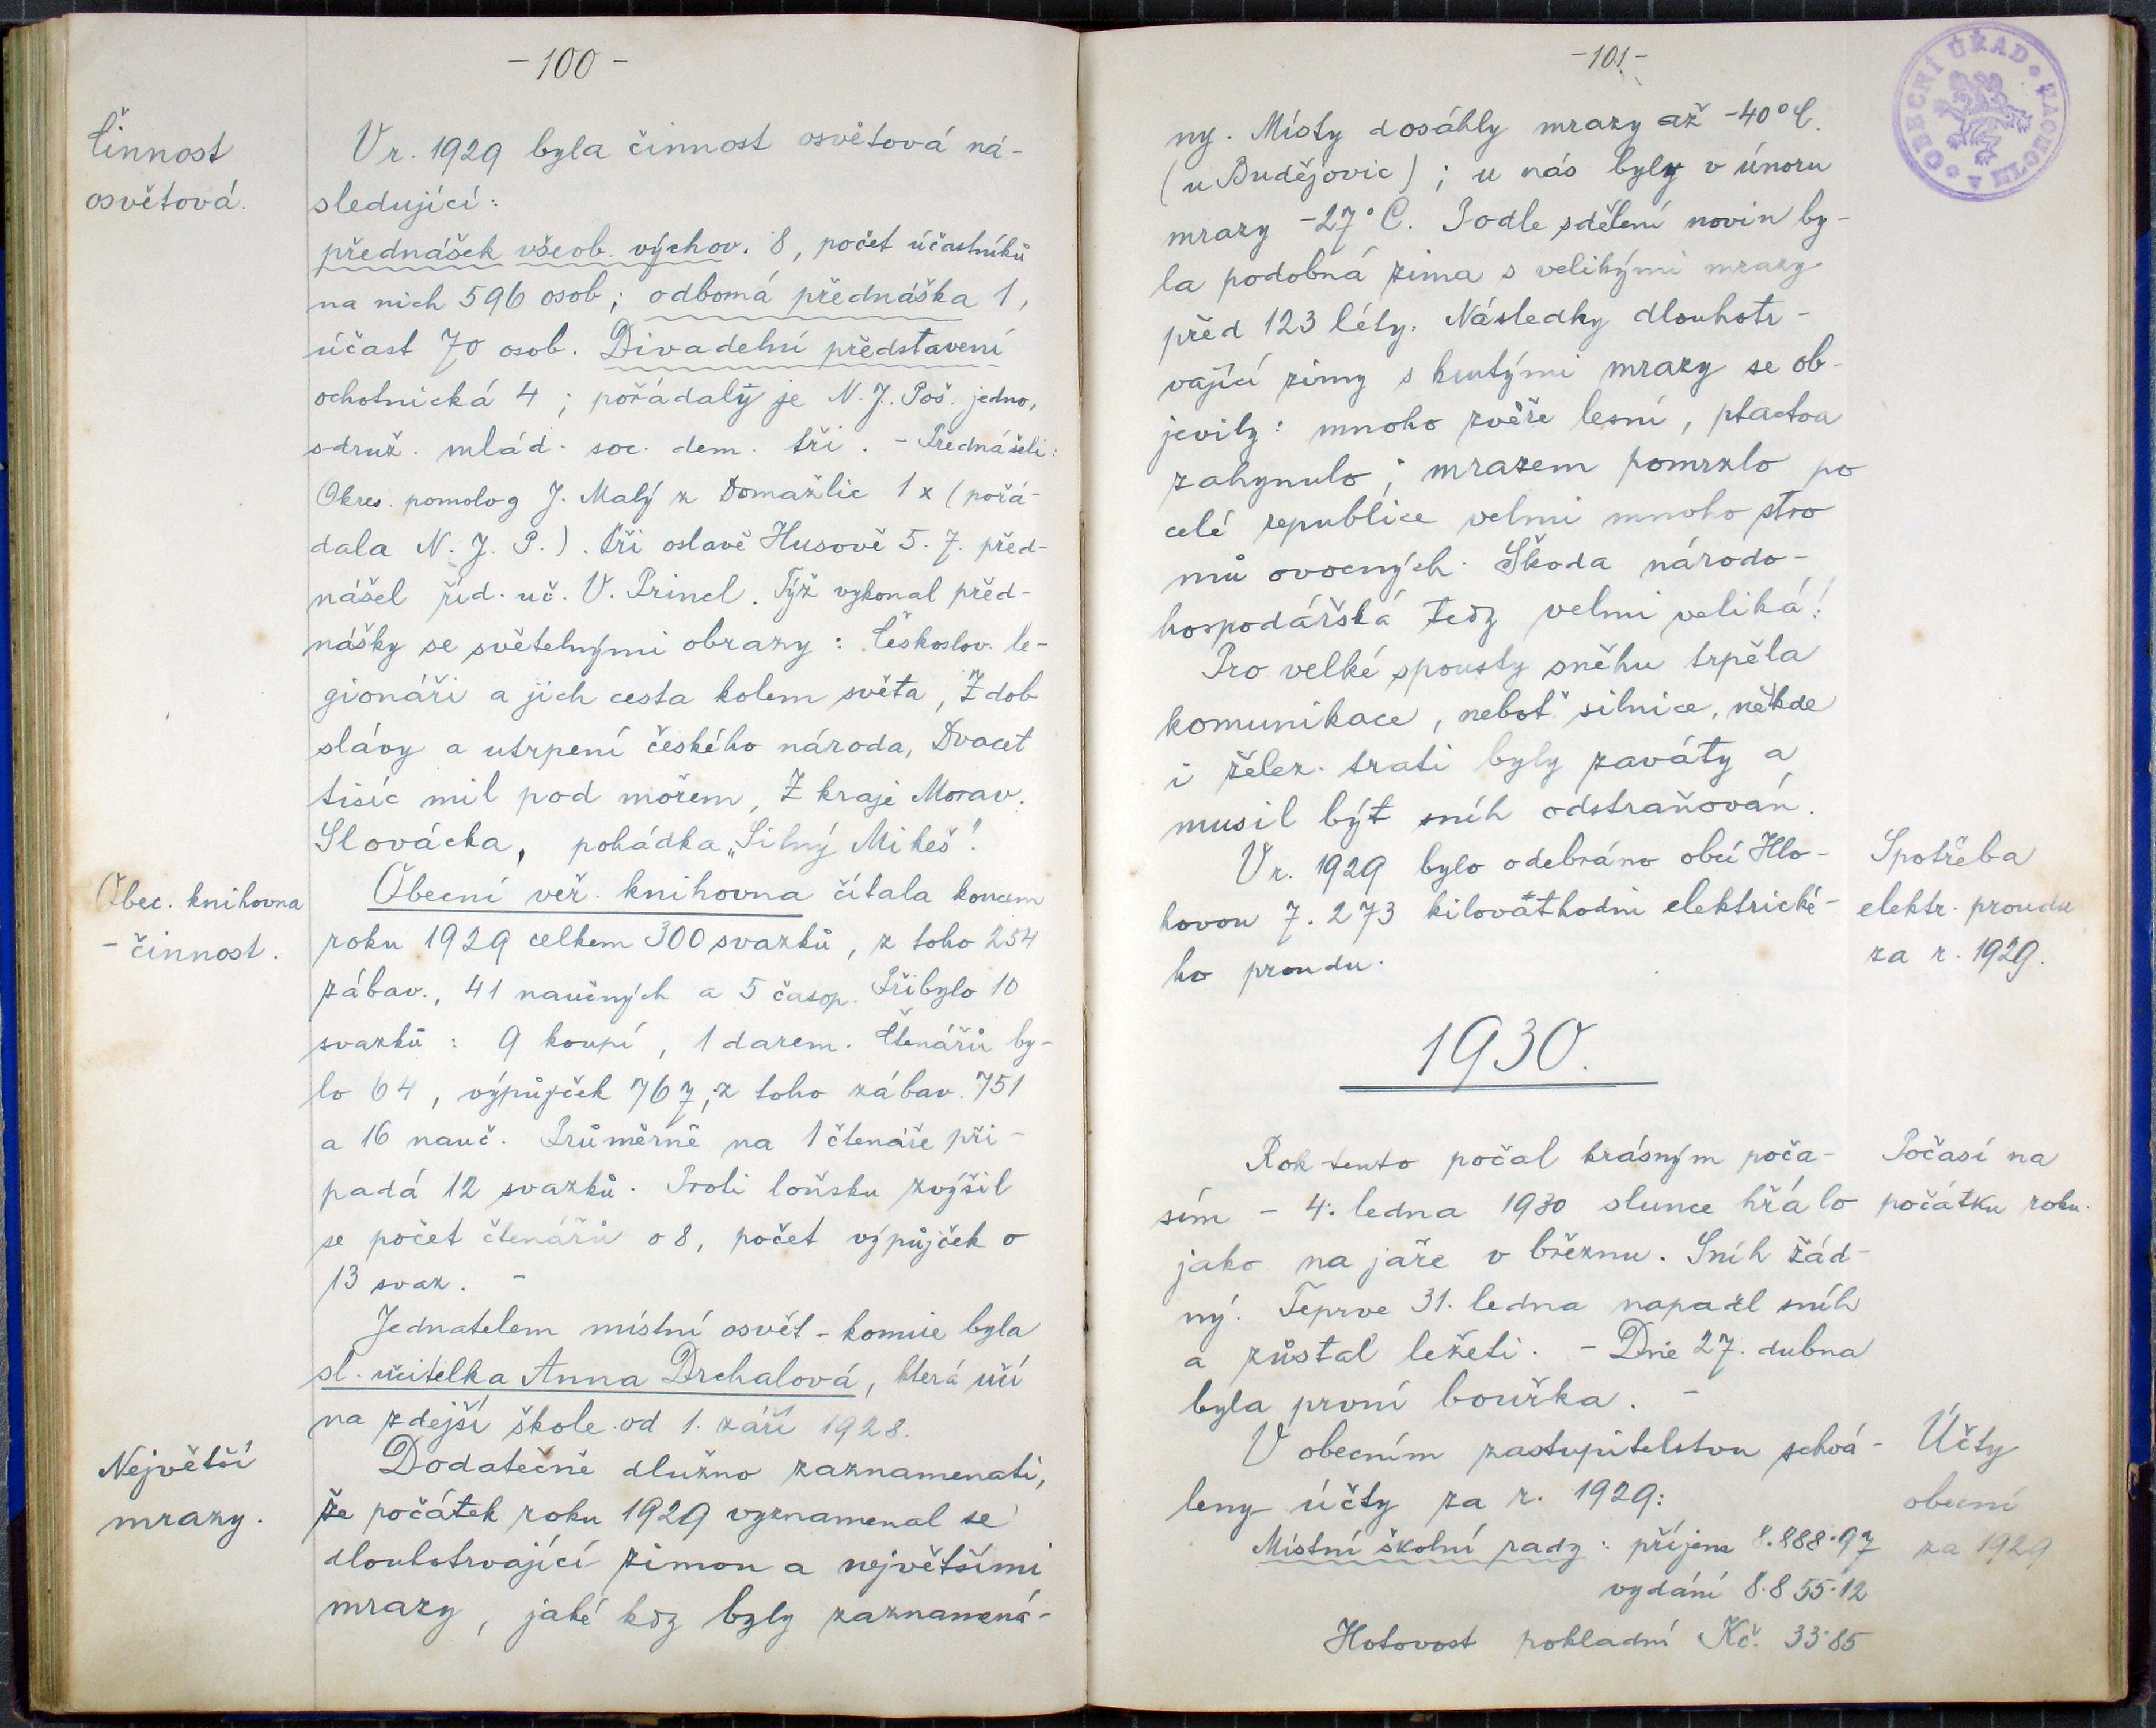 -100-
Činnost
osvětová.
V r. 1929 byla činnost osvětová ná-
sledující:
přednášek všeob. výchov. 8, počet účastníků
na nich 596 osob; odborná přednáška 1,
účast 70 osob. Divadelní představení
ochotnická 4; pořádaly je N. J. Poš. jedno,
sdruž. mlád. soc. dem. tři. - Přednášeli:
Okres. pomolog J. Malý z Domažlic 1x (pořá-
dala N. J. P.). Při oslavě Husově 5. 7. před-
nášel říd. uč. V. Princl. Týž vykonal před-
nášky se světelnými obrazy: Českoslov. le-
gionáři a jich cesta kolem světa, Z dob
slávy a utrpení českého národa, Dvacet
tisíc mil pod mořem, Z kraje Morav.
Slovácka, pohádka „Silný Mikeš".
Obec. knihovna
- činnost.
Obecní veř. knihovna čítala koncem
roku 1929 celkem 300 svazků, z toho 254
zábav., 41 naučných a 5 časop. Přibylo 10
svazků: 9 koupí, 1 darem. Čtenářů by-
lo 64, výpůjček 767, z toho zábav. 751
a 16 nauč. Průměrně na 1 čtenáře při-
padá 12 svazků. Proti loňsku zvýšil
se počet čtenářů o 8, počet výpůjček o
13 svaz. -
Jednatelem místní osvět. komise byla
sl. učitelka Anna Drchalová, která učí
na zdejší škole od 1. září 1928.
Největší
mrazy.
Dodatečně dlužno zaznamenati,
že počátek roku 1929 vyznamenal se
dlouhotrvající zimou a největšími
mrazy, jaké kdy byly zaznamená-
-101-
OBECNÍ ÚŘAD
ny. Místy dosáhly mrazy až -40°C.
(u Budějovic); u nás byly v únoru
mrazy -27°C. Podle sdělení novin by-
la podobná zima s velikými mrazy
před 123 léty. Následky dlouhotr-
vající zimy s krutými mrazy se ob-
jevily: mnoho zvěře lesní, ptactva
zahynulo; mrazem pomrzlo po
celé republice velmi mnoho stro
mů ovocných. Škoda národo-
hospodářská tedy velmi veliká!
Pro velké spousty sněhu trpěla
komunikace, neboť silnice, někde
i želez. trati byly zaváty a
musil být sníh odstraňován.
V r. 1929 bylo odebráno obcí Hlo-
hovou 7.273 kilowatthodin elektrické-
ho proudu.
Spotřeba
elektr. proudu
za r. 1929.
1930.
Rok tento počal krásným poča-
sím - 4. ledna 1930 slunce hřálo
jako na jaře v březnu. Sníh žád-
ný. Teprve 31. ledna napadl sníh
a zůstal ležeti. - Dne 27. dubna
byla první bouřka. -
Počasí na
počátku roku.
V obecním zastupitelstvu schvá-
leny účty za r. 1929:
Místní školní rady: příjem 8.888.97
vydání 8.855.12
Hotovost pokladní Kč. 33.85
Účty
obecní
za 1929